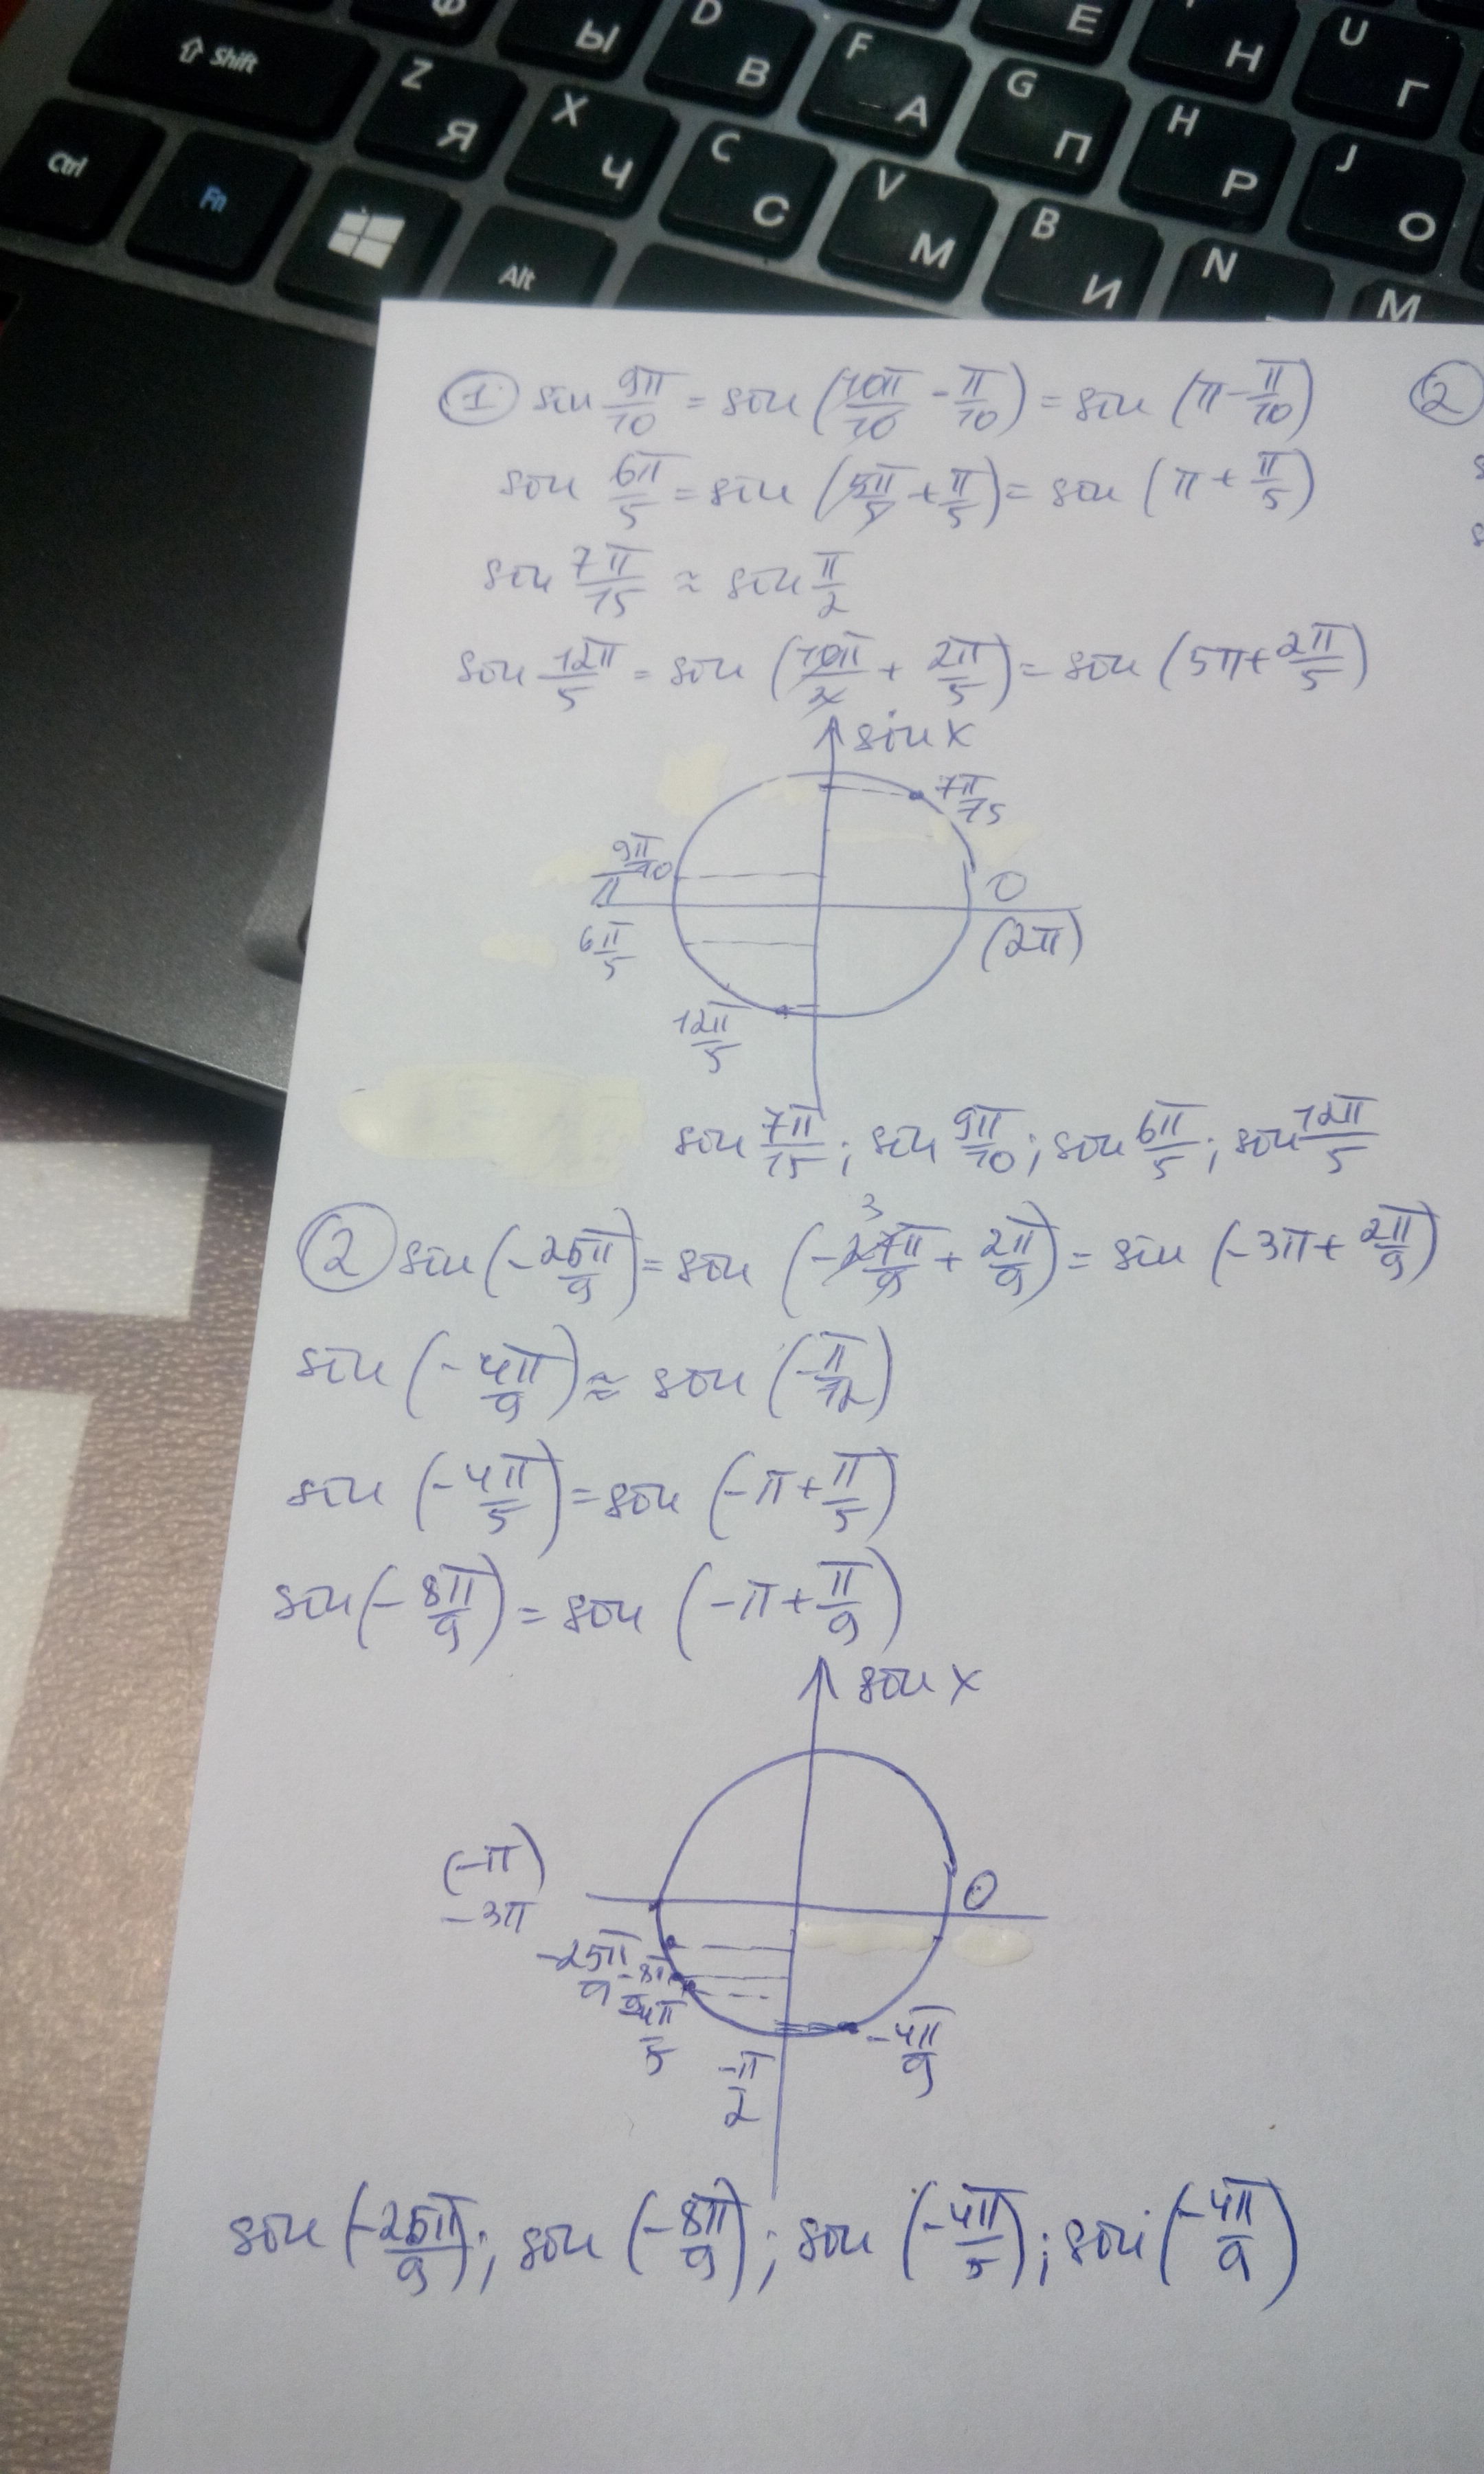 Ф Ы D В F А Е Н U Г
Shift Z Я X Ч C С V М G П H Р J О
Ctrl Fn Alt B И N М
① sin 9π/10 = sin (10π/10 - π/10) = sin (π - π/10)
②
sin 6π/5 = sin (5π/5 + π/5) = sin (π + π/5)
sin 7π/15 ≈ sin π/2
sin 12π/5 = sin (10π/2 + 2π/5) = sin (5π + 2π/5)
sin x
7π/15
9π/10
π
0
6π/5
(2π)
12π/5
sin 7π/15; sin 9π/10; sin 6π/5; sin 12π/5
3
② sin (-25π/9) = sin (-27π/9 + 2π/9) = sin (-3π + 2π/9)
sin (-4π/9) ≈ sin (-π/12)
sin (-4π/5) = sin (-π + π/5)
sin (-8π/9) = sin (-π + π/9)
sin x
(-π)
-3π
0
-25π/9
-8π/9
4π/5
-4π/9
-π/2
sin (-25π/9); sin (-8π/9); sin (-4π/5); sin (-4π/9)